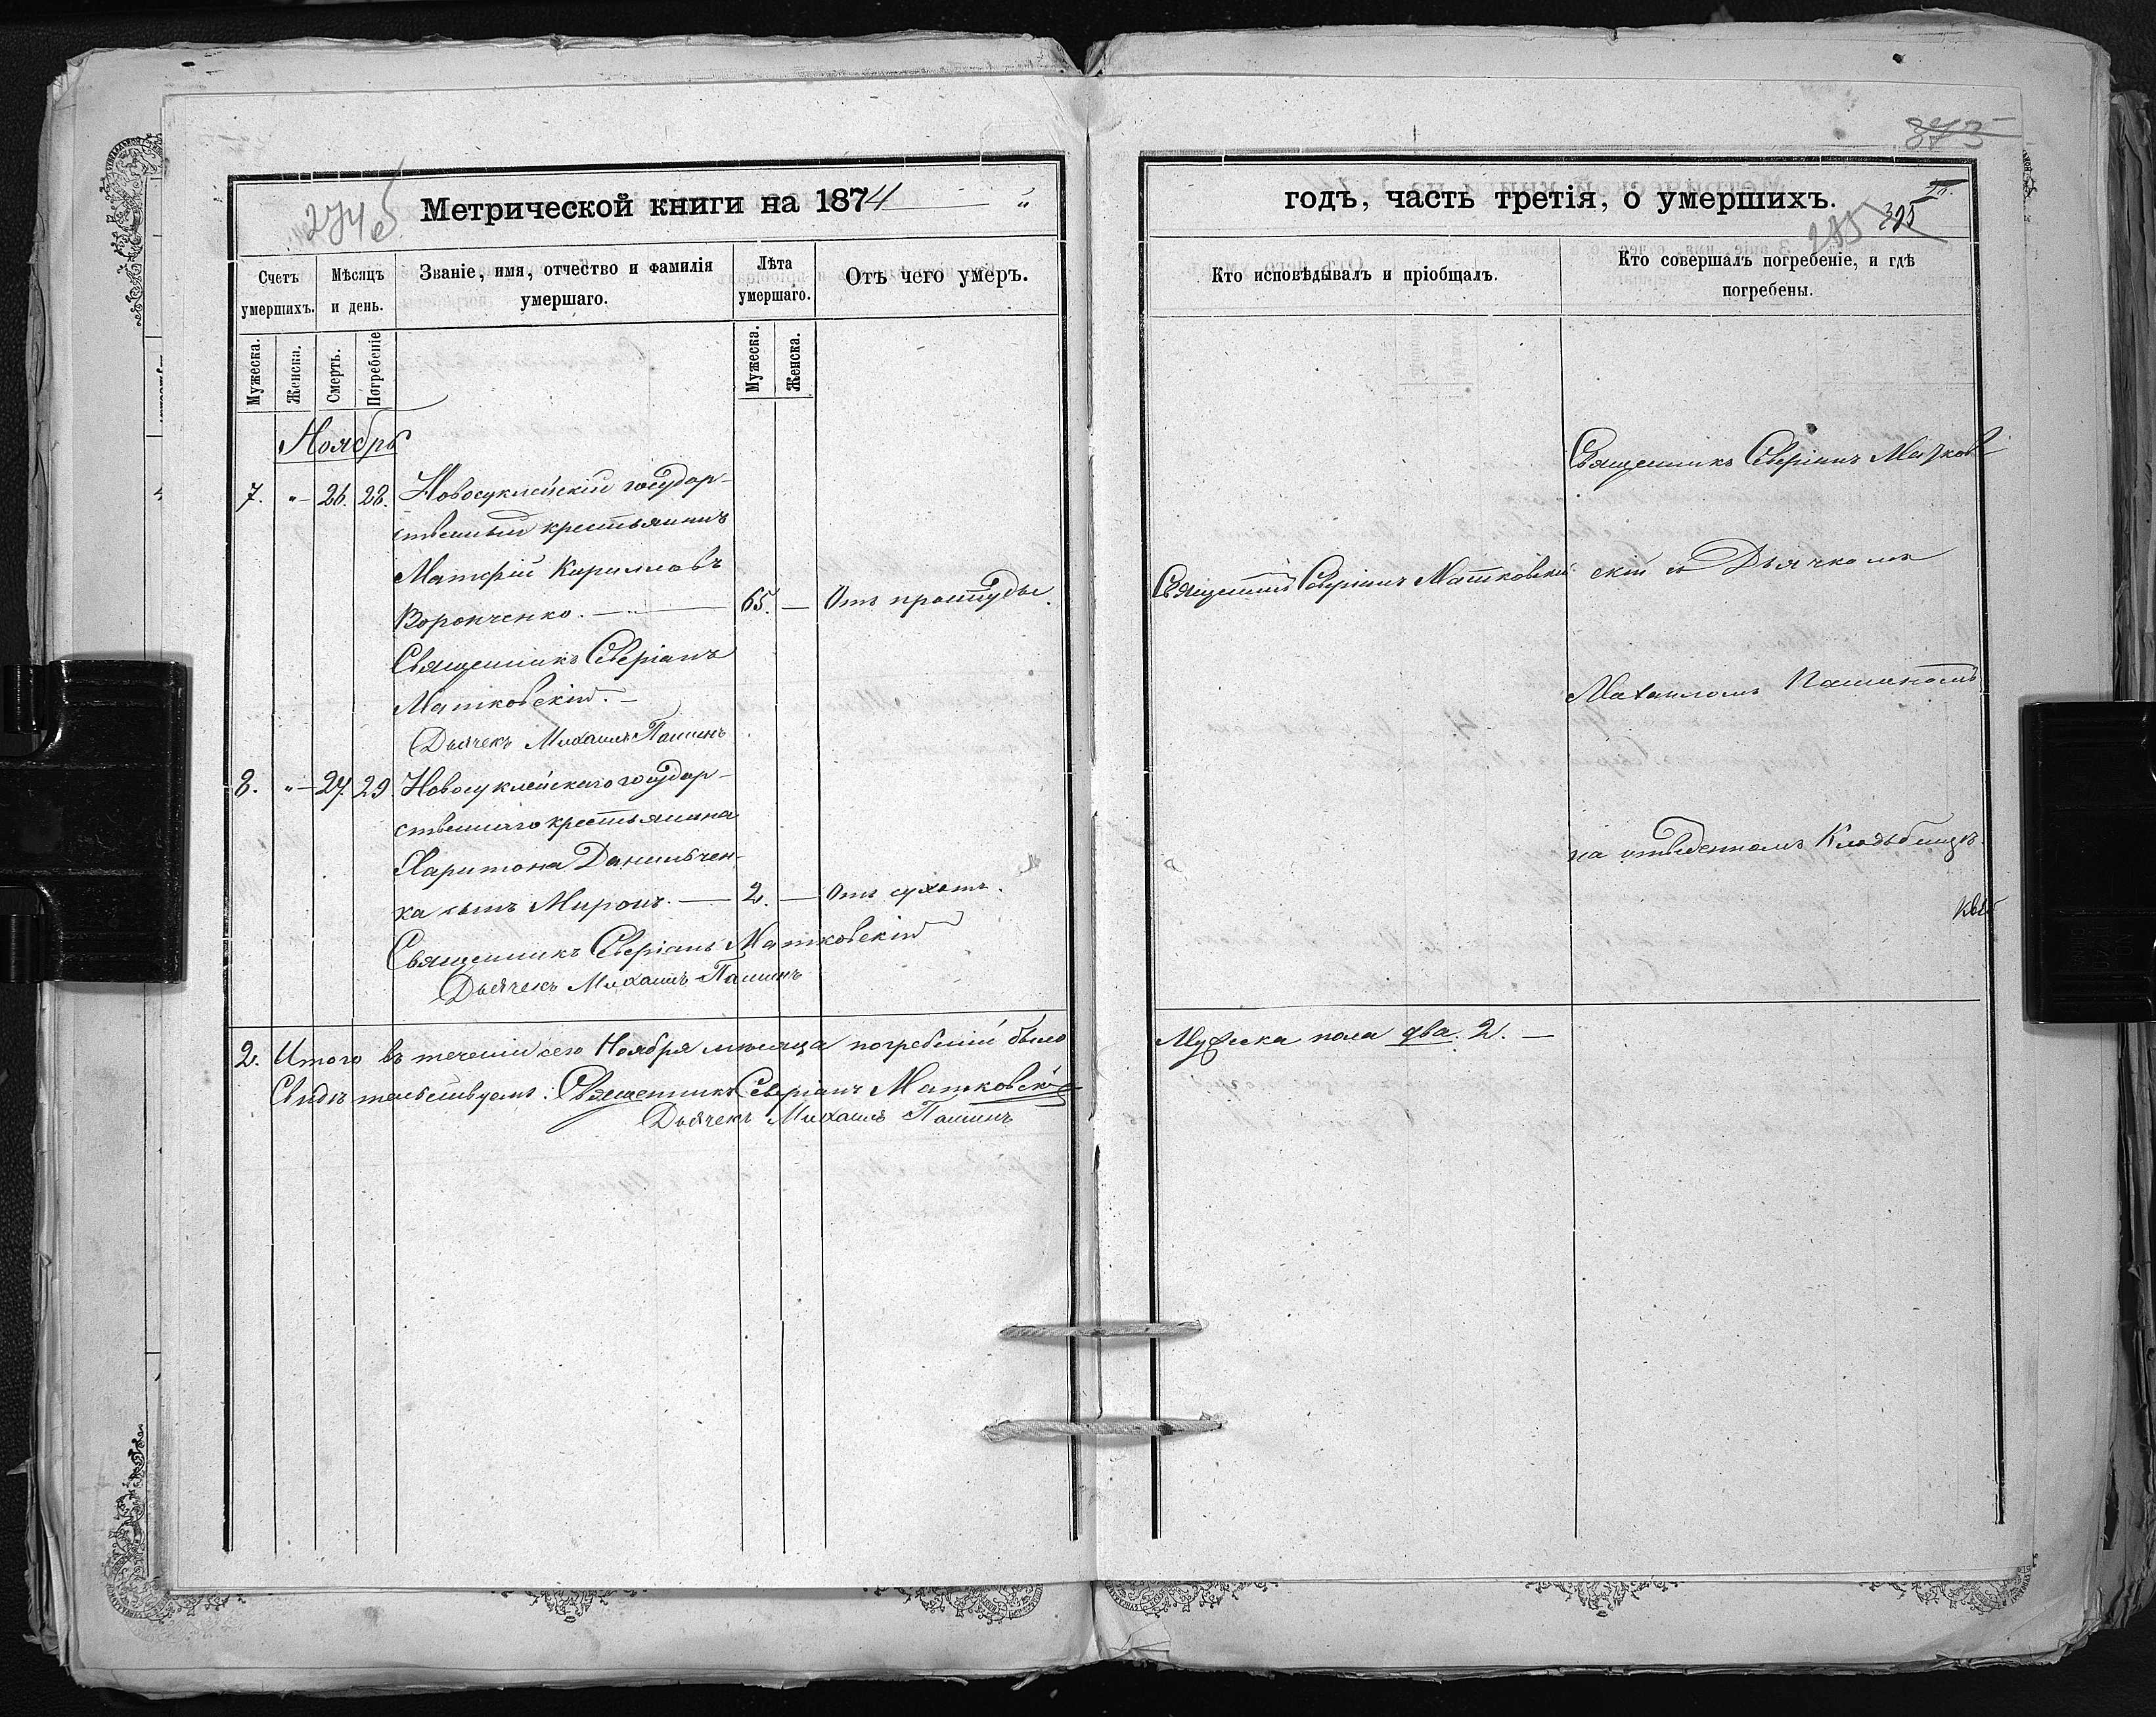 274 б
Метрической книги на 1874 "
Счетъ умершихъ.
Мѣсяцъ и день.
Званіе, имя, отчество и фамилія умершаго.
Лѣта умершаго.
Отъ чего умеръ.
Мужеска.
Женска.
Смерть.
Погребеніе
Мужеска.
Женска.
Ноябрь
7. " 26. 28. Новосуклейскій государ-
ственный крестьянинъ
Матфій Кириловъ
Воронченко. 65. Отъ простуды.
Священникъ Северіанъ
Матковскій.
Дьячекъ Михаилъ Пашинъ
8. " 27. 29 Новосуклейскаго государ-
ственнаго крестьянина
Харитона Данильчен-
ка сынъ Миронъ. 2. Отъ сухотъ.
Священникъ Северіанъ Матковскій
Дьячекъ Михаилъ Пашинъ
2. Итого въ теченіи сего Ноября мѣсяца погребеній было
Свидѣтельствуемъ: Священникъ Северіанъ Матковскій
Дьячекъ Михаилъ Пашинъ
373
годъ, часть третія, о умершихъ.
Кто исповѣдывалъ и пріобщалъ.
Кто совершалъ погребеніе, и гдѣ
погребены.
Священникъ Северіанъ Матков
Священникъ Северіанъ Матковскій
скій съ Дьячкомъ
Михаиломъ Пашиномъ
на отведенномъ Кладбищѣ.
Мужеска пола два. 2.